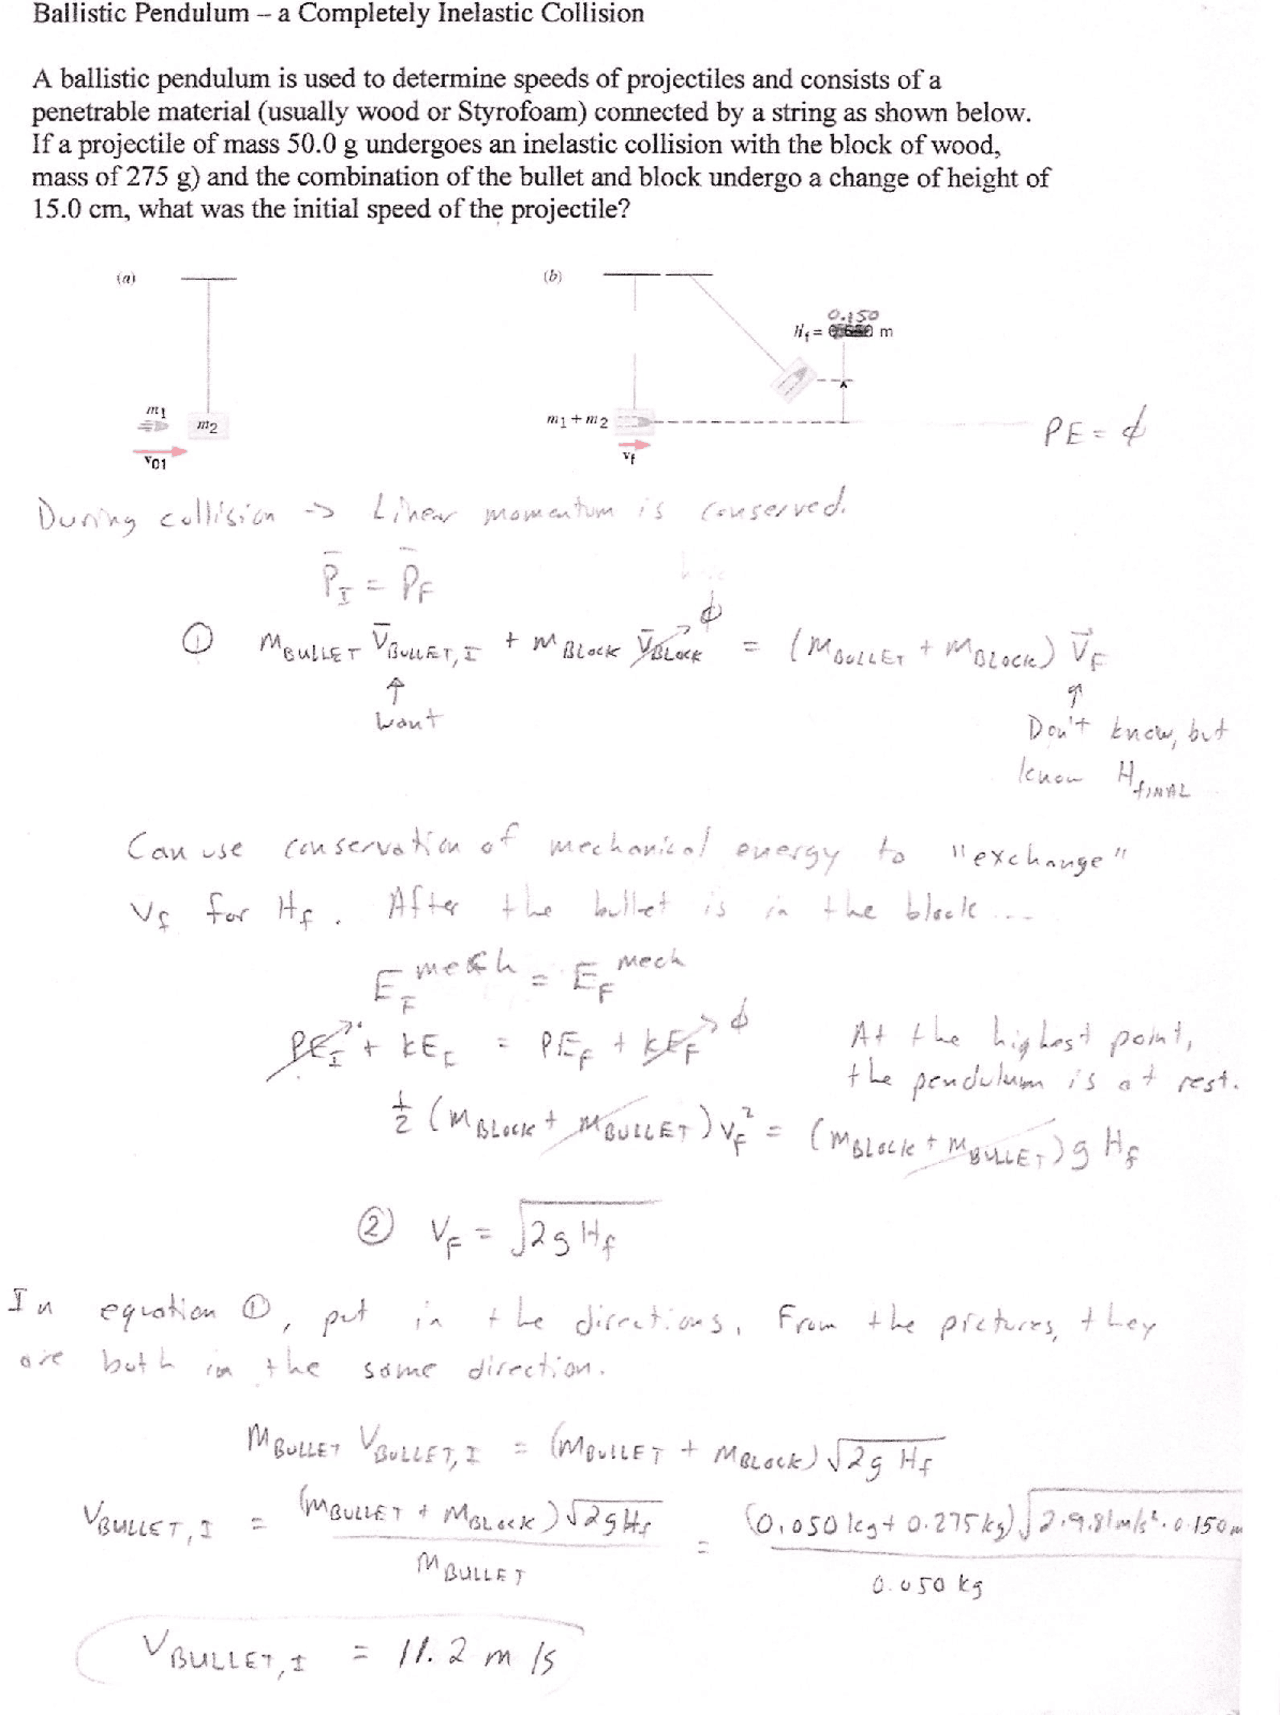 Ballistic Pendulum – a Completely Inelastic Collision
A ballistic pendulum is used to determine speeds of projectiles and consists of a
penetrable material (usually wood or Styrofoam) connected by a string as shown below.
If a projectile of mass 50.0 g undergoes an inelastic collision with the block of wood,
mass of 275 g) and the combination of the bullet and block undergo a change of height of
15.0 cm, what was the initial speed of the projectile?
(a)
(b)
0.150
H_f = m
m_1
m_2
v_01
m_1 + m_2
v_f
PE = ϕ
During collision -> Linear momentum is conserved.
P̄_I = P̄_F
① M_BULLET V̄_BULLET, I + M_BLOCK V̄_BLOCK ϕ = (M_BULLET + M_BLOCK) V⃗_F
↑ want
↑ Don't know, but
know H_FINAL
Can use conservation of mechanical energy to "exchange"
V_f for H_f. After the bullet is in the block ...
E_F^mech = E_F^mech
PE_I + KE_I = PE_F + KE_F ϕ
At the highest point,
the pendulum is at rest.
½ (M_BLOCK + M_BULLET) V_F² = (M_BLOCK + M_BULLET) g H_f
② V_F = √2g H_f
In equation ①, put in the directions. From the pictures, they
are both in the same direction.
M_BULLET V_BULLET, I = (M_BULLET + M_BLOCK) √2g H_f
V_BULLET, I = (M_BULLET + M_BLOCK) √2g H_f / M_BULLET = (0.050 kg + 0.275 kg) √2·9.81 m/s²·0.150 m / 0.050 kg
V_BULLET, I = 11.2 m/s